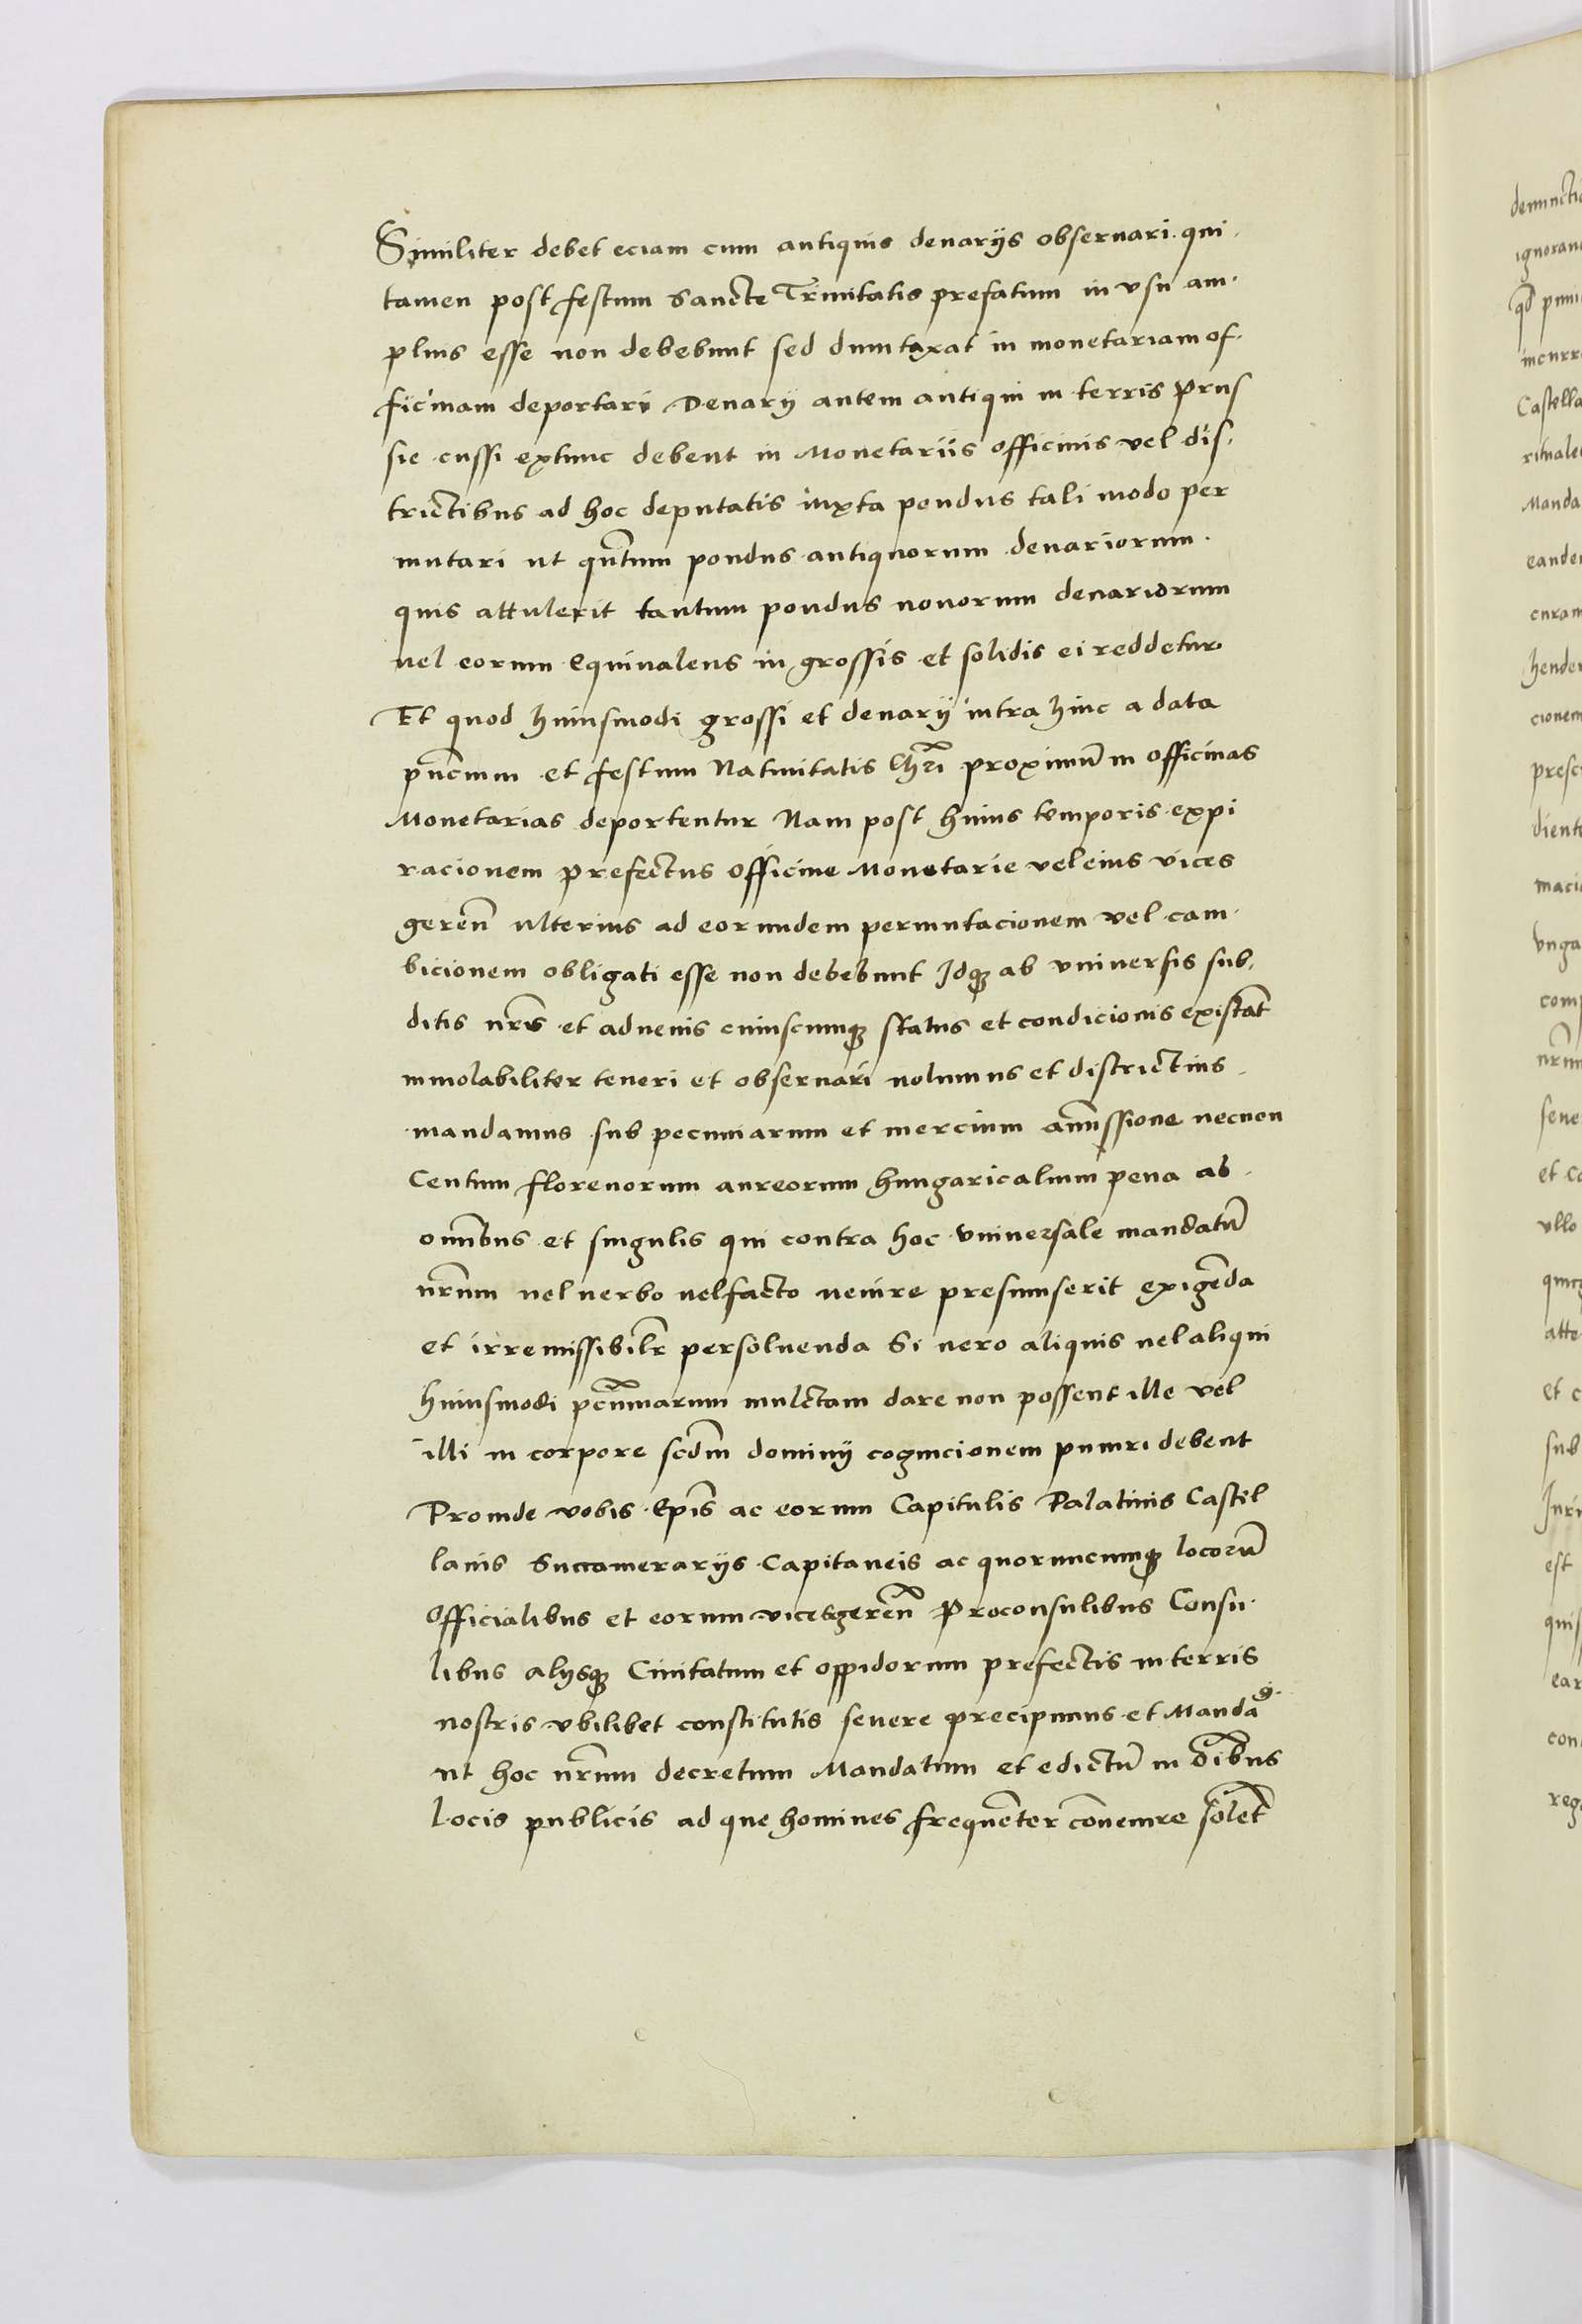 Similiter debet eciam cum antiquis denarijs obseruari. qui
tamen post festum Sancte Trinitatis prefatum in vsu am
plius esse non debebunt sed dumtaxat in monetariam of
ficinam deportari Denarij autem antiqui in terris Prus
sie cussi extunc debent in Monetariis officinis vel dis
trictibus ad hoc deputatis iuxta pondus tali modo per
mutari ut qũtum pondus antiquorum denariorum.
quis attulerit tantum pondus nouorum denariorum
uel eorum equiualens in grossis et solidis ei reddetur
Et quod huiusmodi grossi et denarij intra hinc a data
pñcium et festum Natiuitatis Chr̃i proximũ in officinas
Monetarias deportentur Nam post huius temporis expi
racionem prefectus officine Monetarie vel eius vices
gereñ ulterius ad eorundem permutacionem vel cam
bicionem obligati esse non debebunt Idqꝫ ab vniuersis sub
ditis nr̃is et aduenis cuiuscumqꝫ status et condicionis existãt
inuiolabiliter teneri et obseruari uolumus et districtius
mandamus sub pecuniarum et mercium amissione necnon
Centum florenorum aureorum hungaricalium pena ab
omnibus et singulis qui contra hoc vniuersale mandatũ
nr̃um uel uerbo uel facto uenire presumserit exigẽda
et irremissibilr̃ persoluenda Si uero aliquis uel aliqui
huiusmodi pcũniarum mulctam dare non possent ille vel
illi in corpore scdm̃ dominij cognicionem puniri debent
Proinde vobis Ep̃is ac eorum Capitulis Palatinis Castel
lanis Succamerarijs Capitaneis ac quorumcumqꝫ locorũ
Officialibus et eorum vicesgereñ Proconsulibus Consu
libus alijsqꝫ Ciuitatum et oppidorum prefectis in terris
nostris vbilibet constitutis seuere precipimus et Mandaꝰ
ut hoc nr̃um decretum Mandatum et edictũ in õibus
locis publicis ad que homines frequẽter cõuenire solẽt
denuncti
ignoran
qđ puni
incurr
Castella
rituale
Manda
eander
curam
hender
cionem
presc
dient
maci
vnga
com
nr̃um
seue
et co
vllo
quicq
atte
et c
sub
est
quis
ear
con
reg